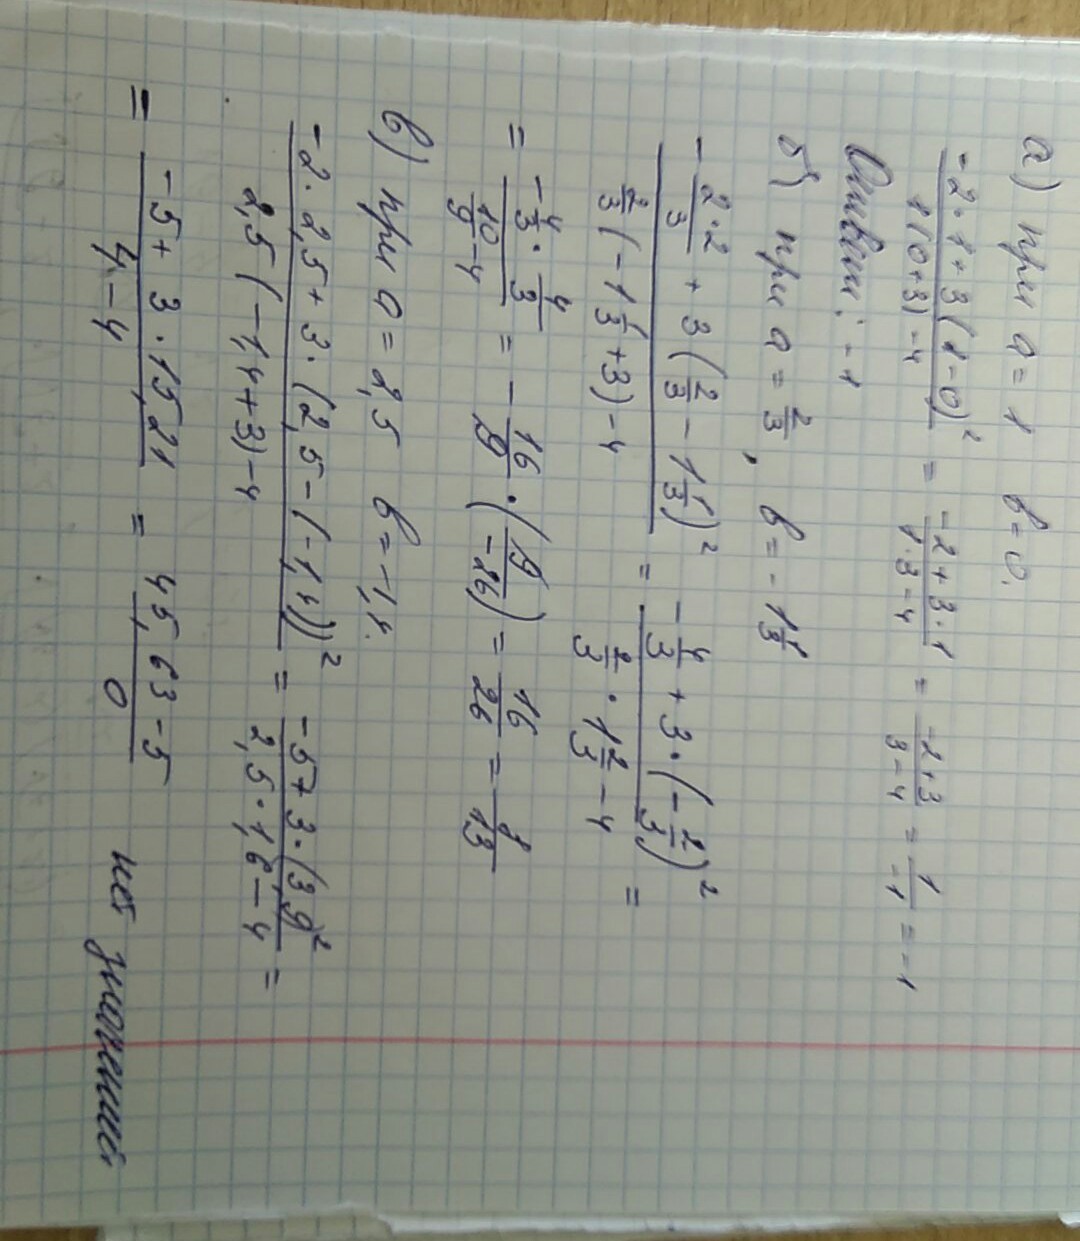 а) при a = 1   b = 0.
(-2·1+3(1-0)²)/(1(0+3)-4) = (-2+3·1)/(1·3-4) = (-2+3)/(3-4) = 1/-1 = -1
Ответ: -1
б) при a = 2/3, b = -1 1/3
(-2·2/3 + 3(2/3 - 1 1/3)²)/(2/3(-1 1/3+3)-4) = (-4/3 + 3·(-2/3)²)/(2/3 · 1 2/3 - 4) =
= (-4/3 · 4/3)/(10/9 - 4) = -16/9 · (9/-26) = 16/26 = 8/13
в) при a = 2,5   b = -1,4.
(-2·2,5+3·(2,5-(-1,4))²)/(2,5(-1,4+3)-4) = (-5+3·(3,9²)/(2,5·1,6-4) =
= (-5+3·15,21)/(4-4) = (45,63-5)/0   нет значения.